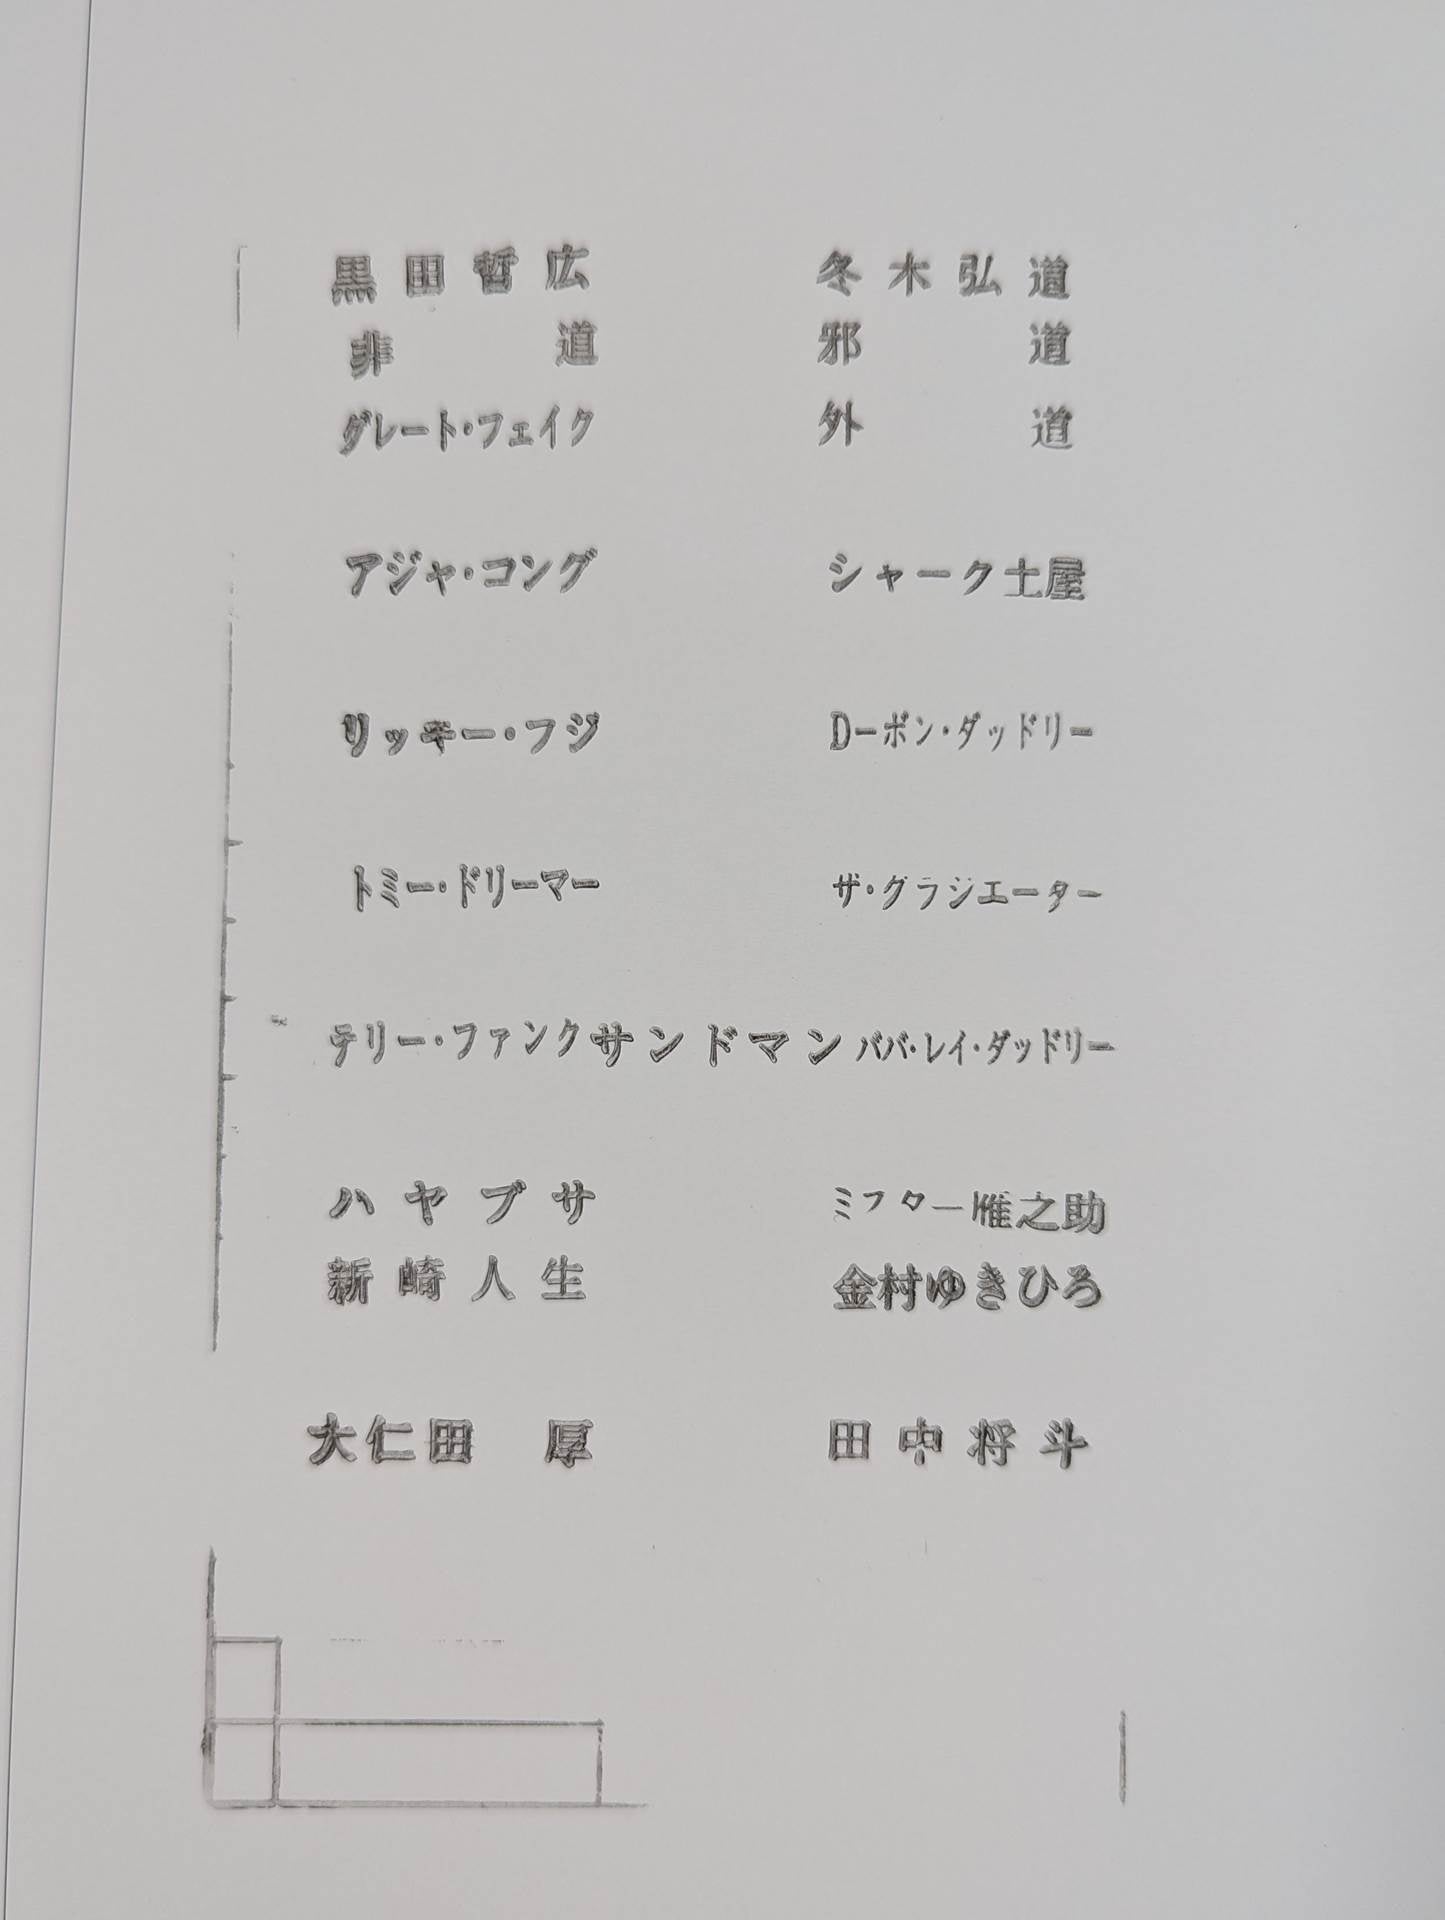 黒田哲広 冬木弘道
非道 邪道
グレート・フェイク 外道
アジャ・コング シャーク土屋
リッキー・フジ Dーボン・ダッドリー
トミー・ドリーマー ザ・グラジエーター
テリー・ファンク サンドマン ババ・レイ・ダッドリー
ハヤブサ ミスター雁之助
新崎人生 金村ゆきひろ
大仁田 厚 田中将斗